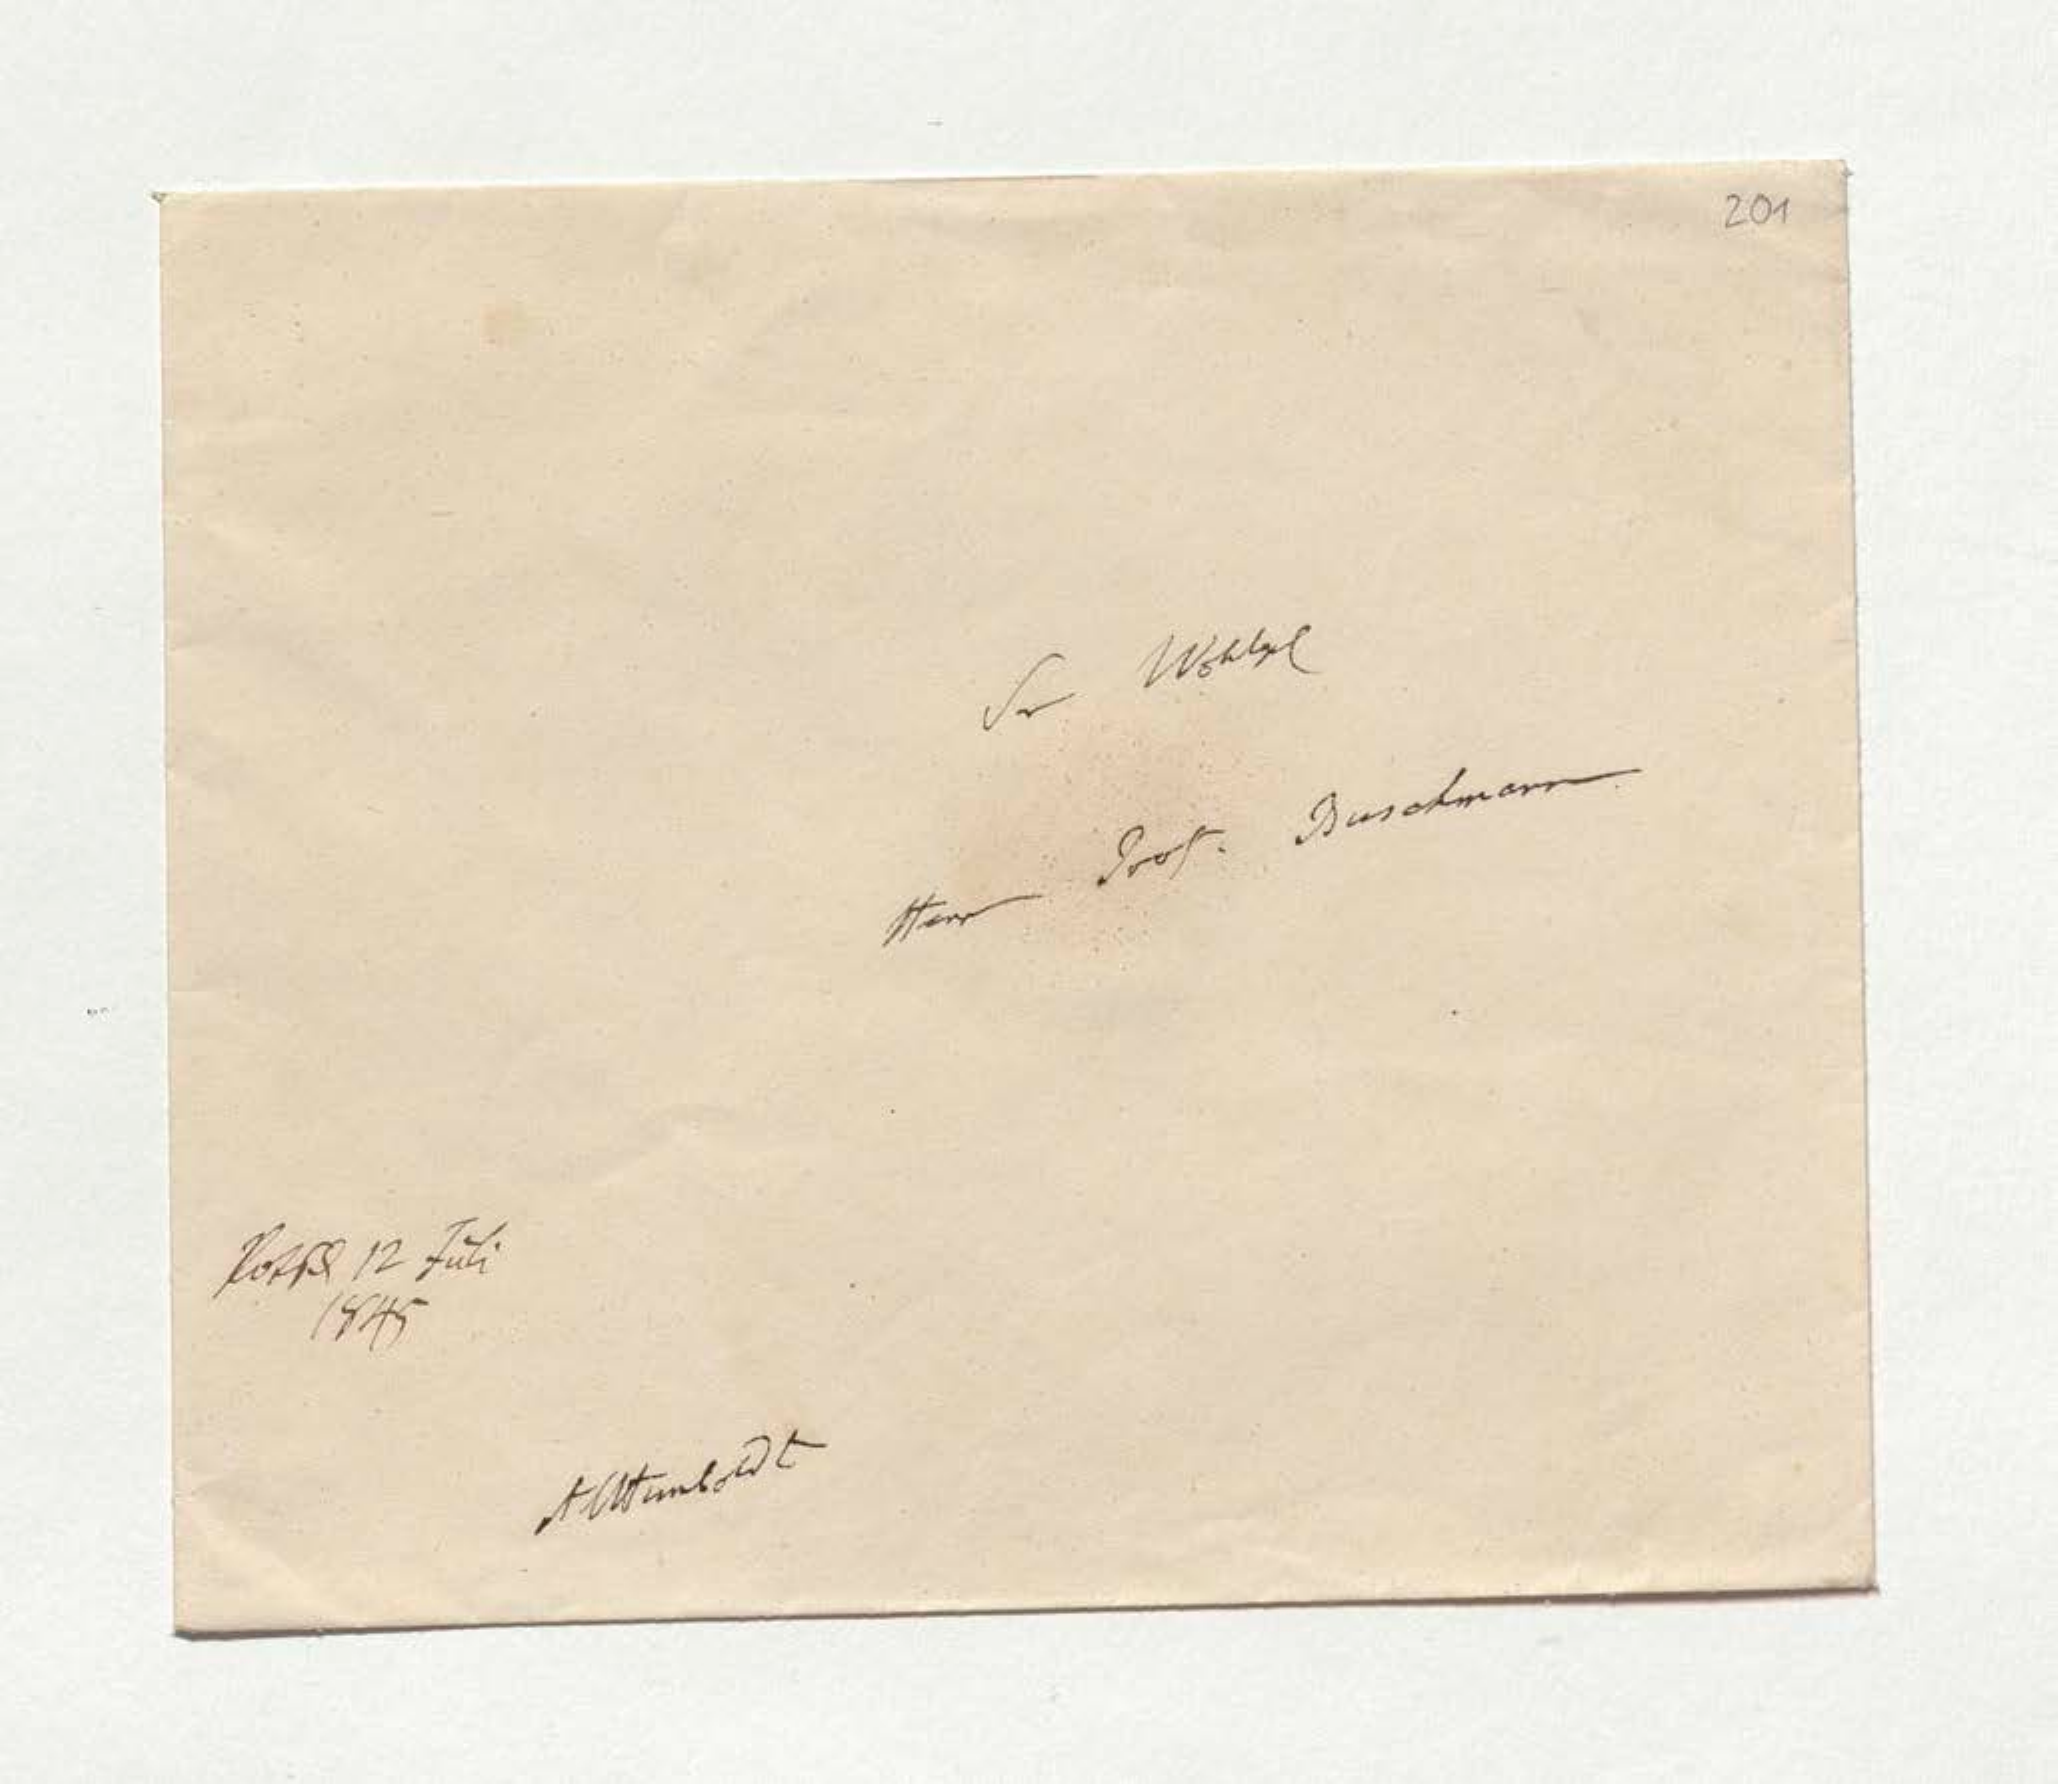 201
Sr Wohlgb
Herr Prof. Buschmann
Potsd 12 Juli
1845
A v Humboldt